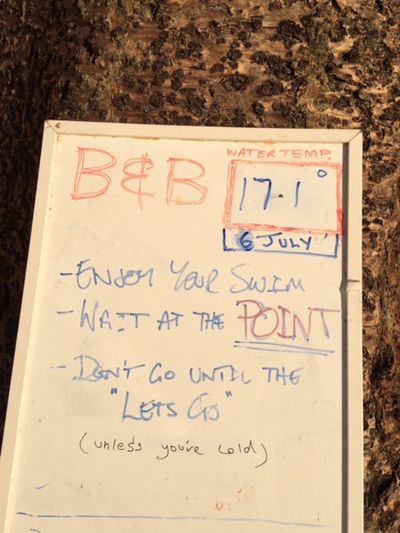 B & B
WATER TEMP.
17.1°
6 JULY
- ENJOY YOUR SWIM
- WAIT AT THE POINT
- DON'T GO UNTIL THE
"LETS GO"
(unless you're cold)